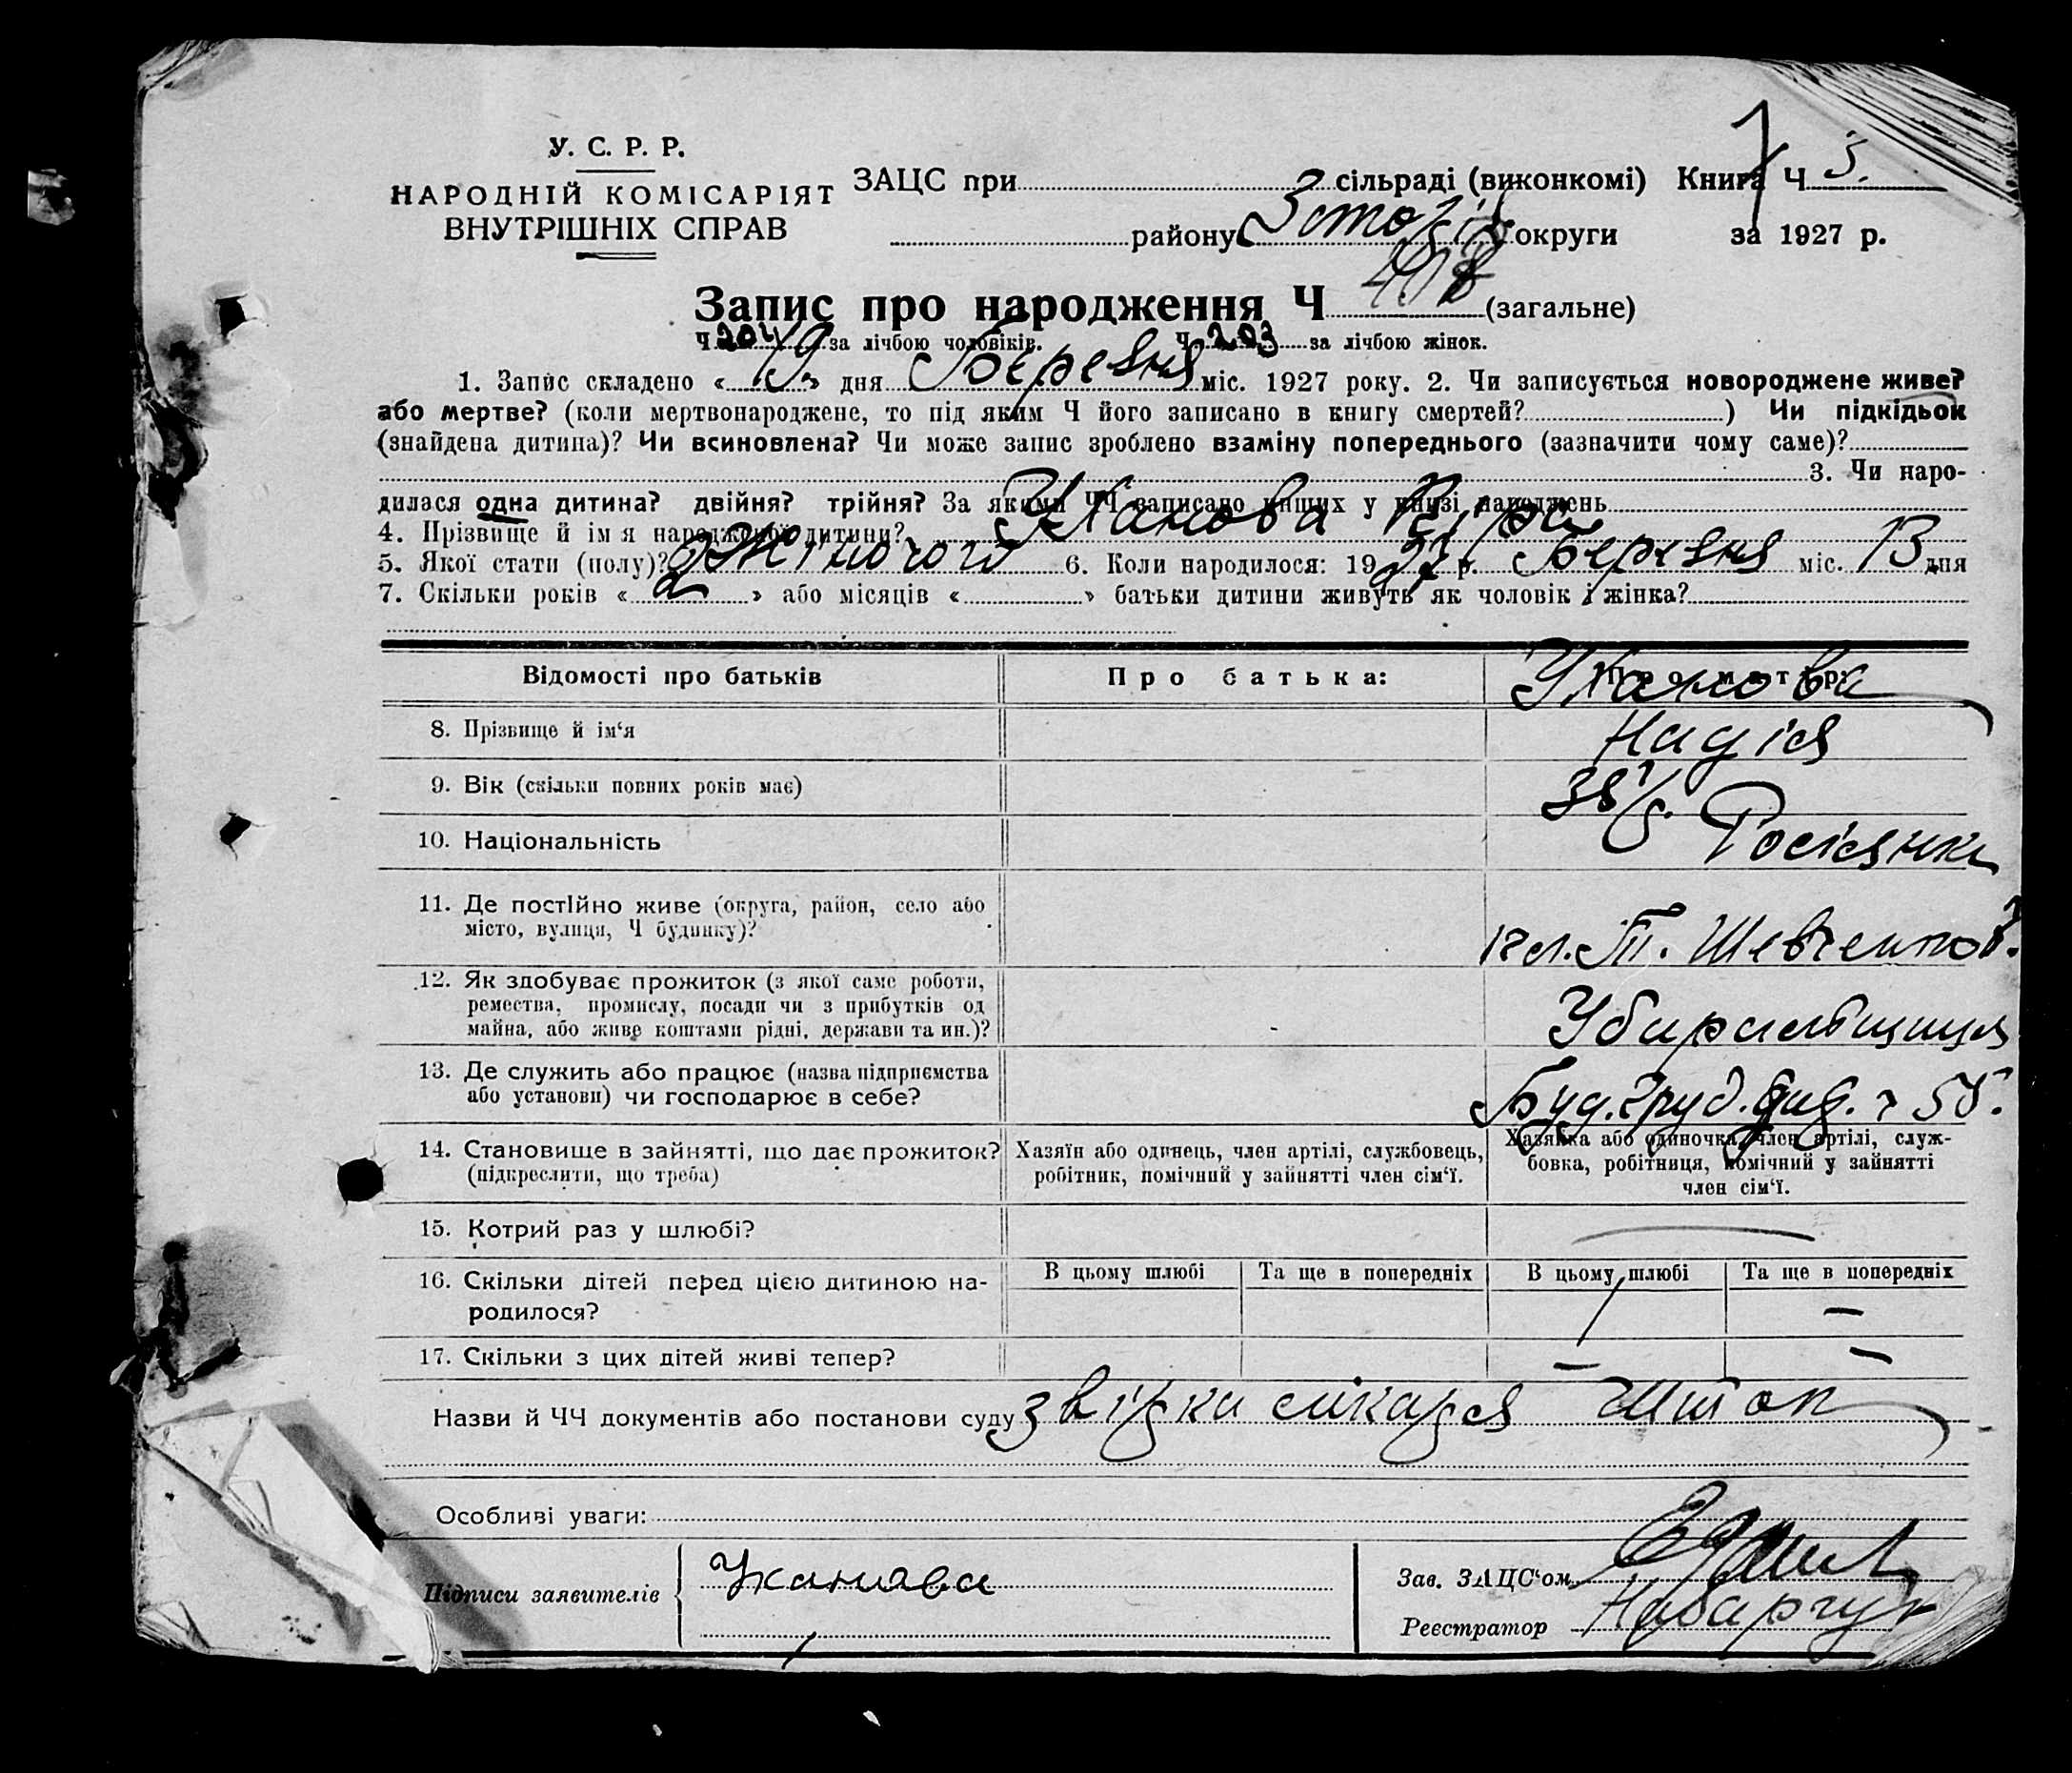 У. С. Р. Р.
НАРОДНІЙ КОМІСАРІЯТ
ВНУТРІШНІХ СПРАВ
ЗАЦС при сільраді (виконкомі) Книга Ч 3.
району округи за 1927 р.
Запис про народження Ч (загальне)
Ч 204 за лічбою чоловіків. Ч 203 за лічбою жінок.
1. Запис складено « 19 » дня Березня міс. 1927 року. 2. Чи записується новороджене живе?
або мертве? (коли мертвонароджене, то під яким Ч його записано в книгу смертей? ) Чи підкідьок
(знайдена дитина)? Чи всиновлена? Чи може запис зроблено взаміну попереднього (зазначити чому саме)?
3. Чи наро-
дилася одна дитина? двійня? трійня? За якими ЧЧ записано инших у книзі народжень
4. Прізвище й ім я народженої дитини? Уханова
5. Якої статі (полу)? Жіночого 6. Коли народилося: 1927 р. Березня міс. 13 дня
7. Скільки років « 2 » або місяців « » батьки дитини живуть як чоловік і жінка?
Відомості про батьків Про батька: Про матір:
Уханова
8. Прізвище й ім‘я Надія
9. Вік (скільки повних років має) 38 р.
10. Національність Росіянка
11. Де постійно живе (округа, район, село або
місто, вулиця, Ч будинку)? Т. Шевченков.
12. Як здобуває прожиток (з якої саме роботи,
ремества, промислу, посади чи з прибутків од
майна, або живе коштами рідні, держави та ин.)? Убиральщиця
13. Де служить або працює (назва підприємства
або установи) чи господарює в себе? Буд. груд. дит.
14. Становище в зайнятті, що дає прожиток?
(підкреслити, що треба)
Хазяїн або одинець, член артілі, службовець,
робітник, помічний у зайнятті член сім‘ї.
Хазяйка або одиночка, член артілі, служ-
бовка, робітниця, помічний у зайнятті
член сім‘ї.
15. Котрий раз у шлюбі? —
16. Скільки дітей перед цією дитиною на-
родилося?
В цьому шлюбі Та ще в попередніх В цьому шлюбі Та ще в попередніх
1 —
17. Скільки з цих дітей живі тепер? — —
Назви й ЧЧ документів або постанови суду звістка лікаря
Особливі уваги:
Підписи заявителів Уханова
Зав. ЗАЦС‘ом
Реєстратор